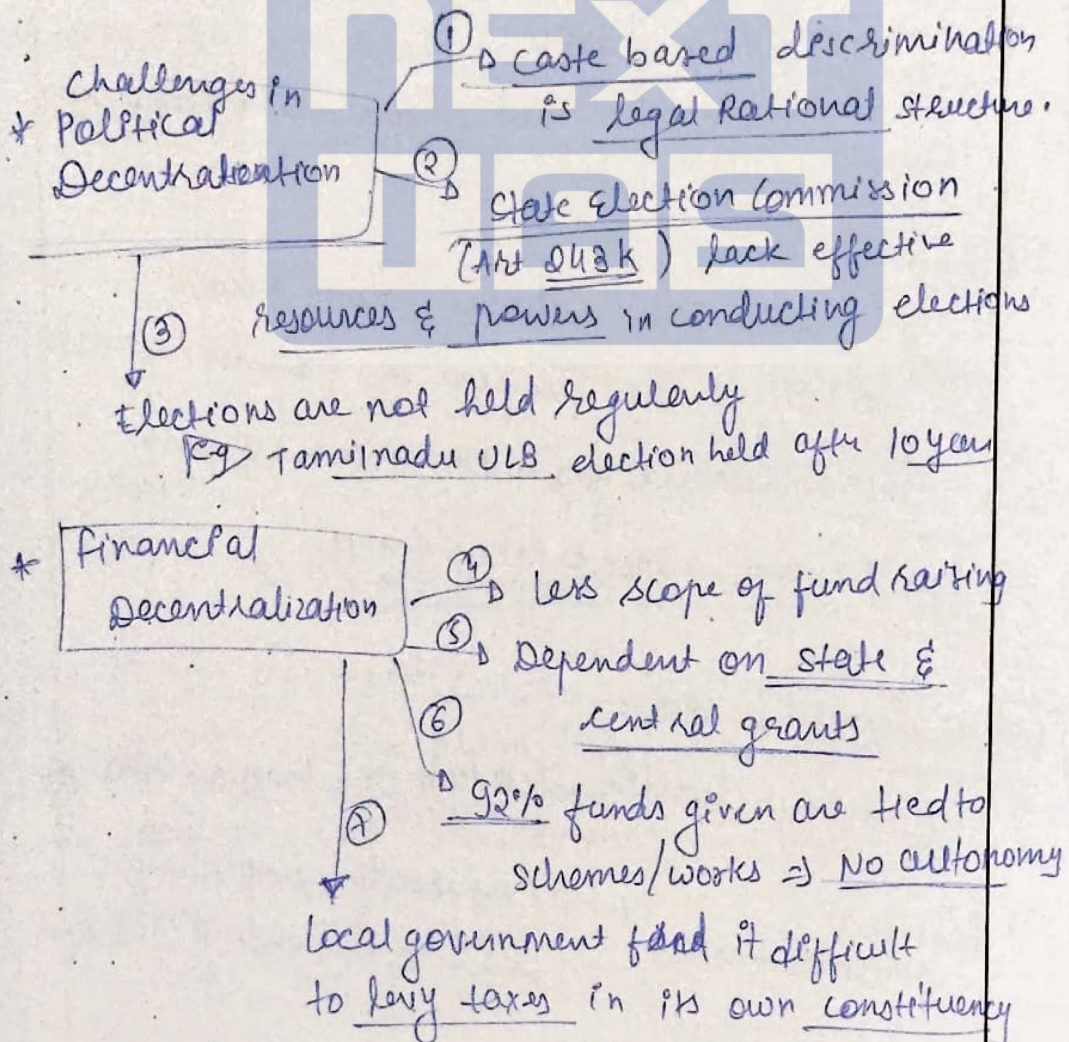 NEXT
IAS
Challenges in
* Political
Decentralisation
① caste based discrimination
is legal Rational structure.
② State Election Commission
(Art 243K) lack effective
resources & powers in conducting elections
③
Elections are not held regularly
Eg Tamilnadu ULB election held after 10 year
* Financial
Decentralization
④ Less scope of fund raising
⑤ Dependent on state &
central grants
⑥
92% funds given are tied to
schemes/works => No autonomy
⑦
Local government find it difficult
to levy taxes in its own constituency